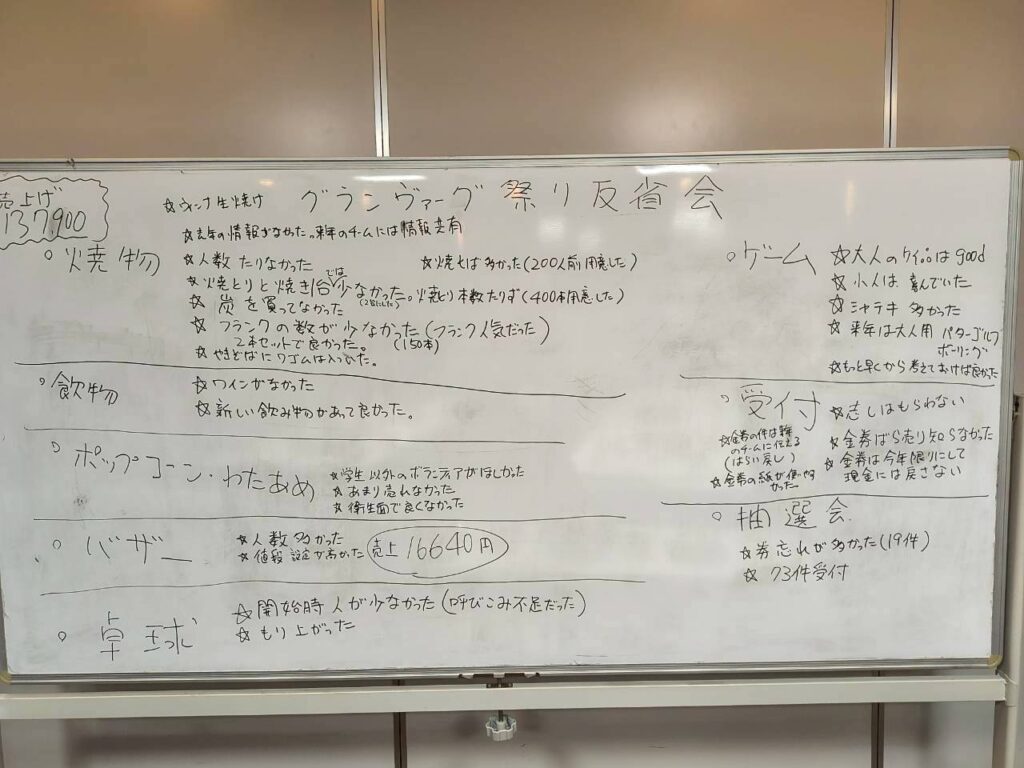 売上げ
137,900
グランヴァーグ祭り反省会
☆ウィンナ生焼け
☆去年の情報がなかった。来年のチームには情報共有
○焼物
☆人数たりなかった
☆焼そば多かった(200人前用意した)
☆焼とりと焼き台では少なかった。焼とり本数たりず(400本用意した)
☆炭を買ってなかった
☆フランクの数が少なかった(フランク人気だった)
2本セットで良かった。(150本)
☆やきそばにワゴムは入っていた。
○飲物
☆ワインがなかった
☆新しい飲み物があって良かった。
○ポップコーン・わたあめ
☆学生以外のボランティアがほしかった
☆あまり売れなかった
☆衛生面で良くなかった
○バザー
☆人数多かった
☆値段設定が高かった
売上16640円
○卓球
☆開始時人が少なかった(呼びこみ不足だった)
☆もり上がった
○ゲーム
☆大人のケイ品はgood
☆小人は喜んでいた
☆シャテキ多かった
☆来年は大人用パターゴルフ
ボーリング
☆もっと早くから考えておけば良かった
○受付
☆志しはもらわない
☆金券ばら売り知らなかった
☆金券は今年限りにして
現金には戻さない
☆金券の件は翌年
のチームに伝える
(はらい戻し)
☆金券の紙が使いやす
かった
○抽選会
☆券忘れが多かった(19件)
☆73件受付